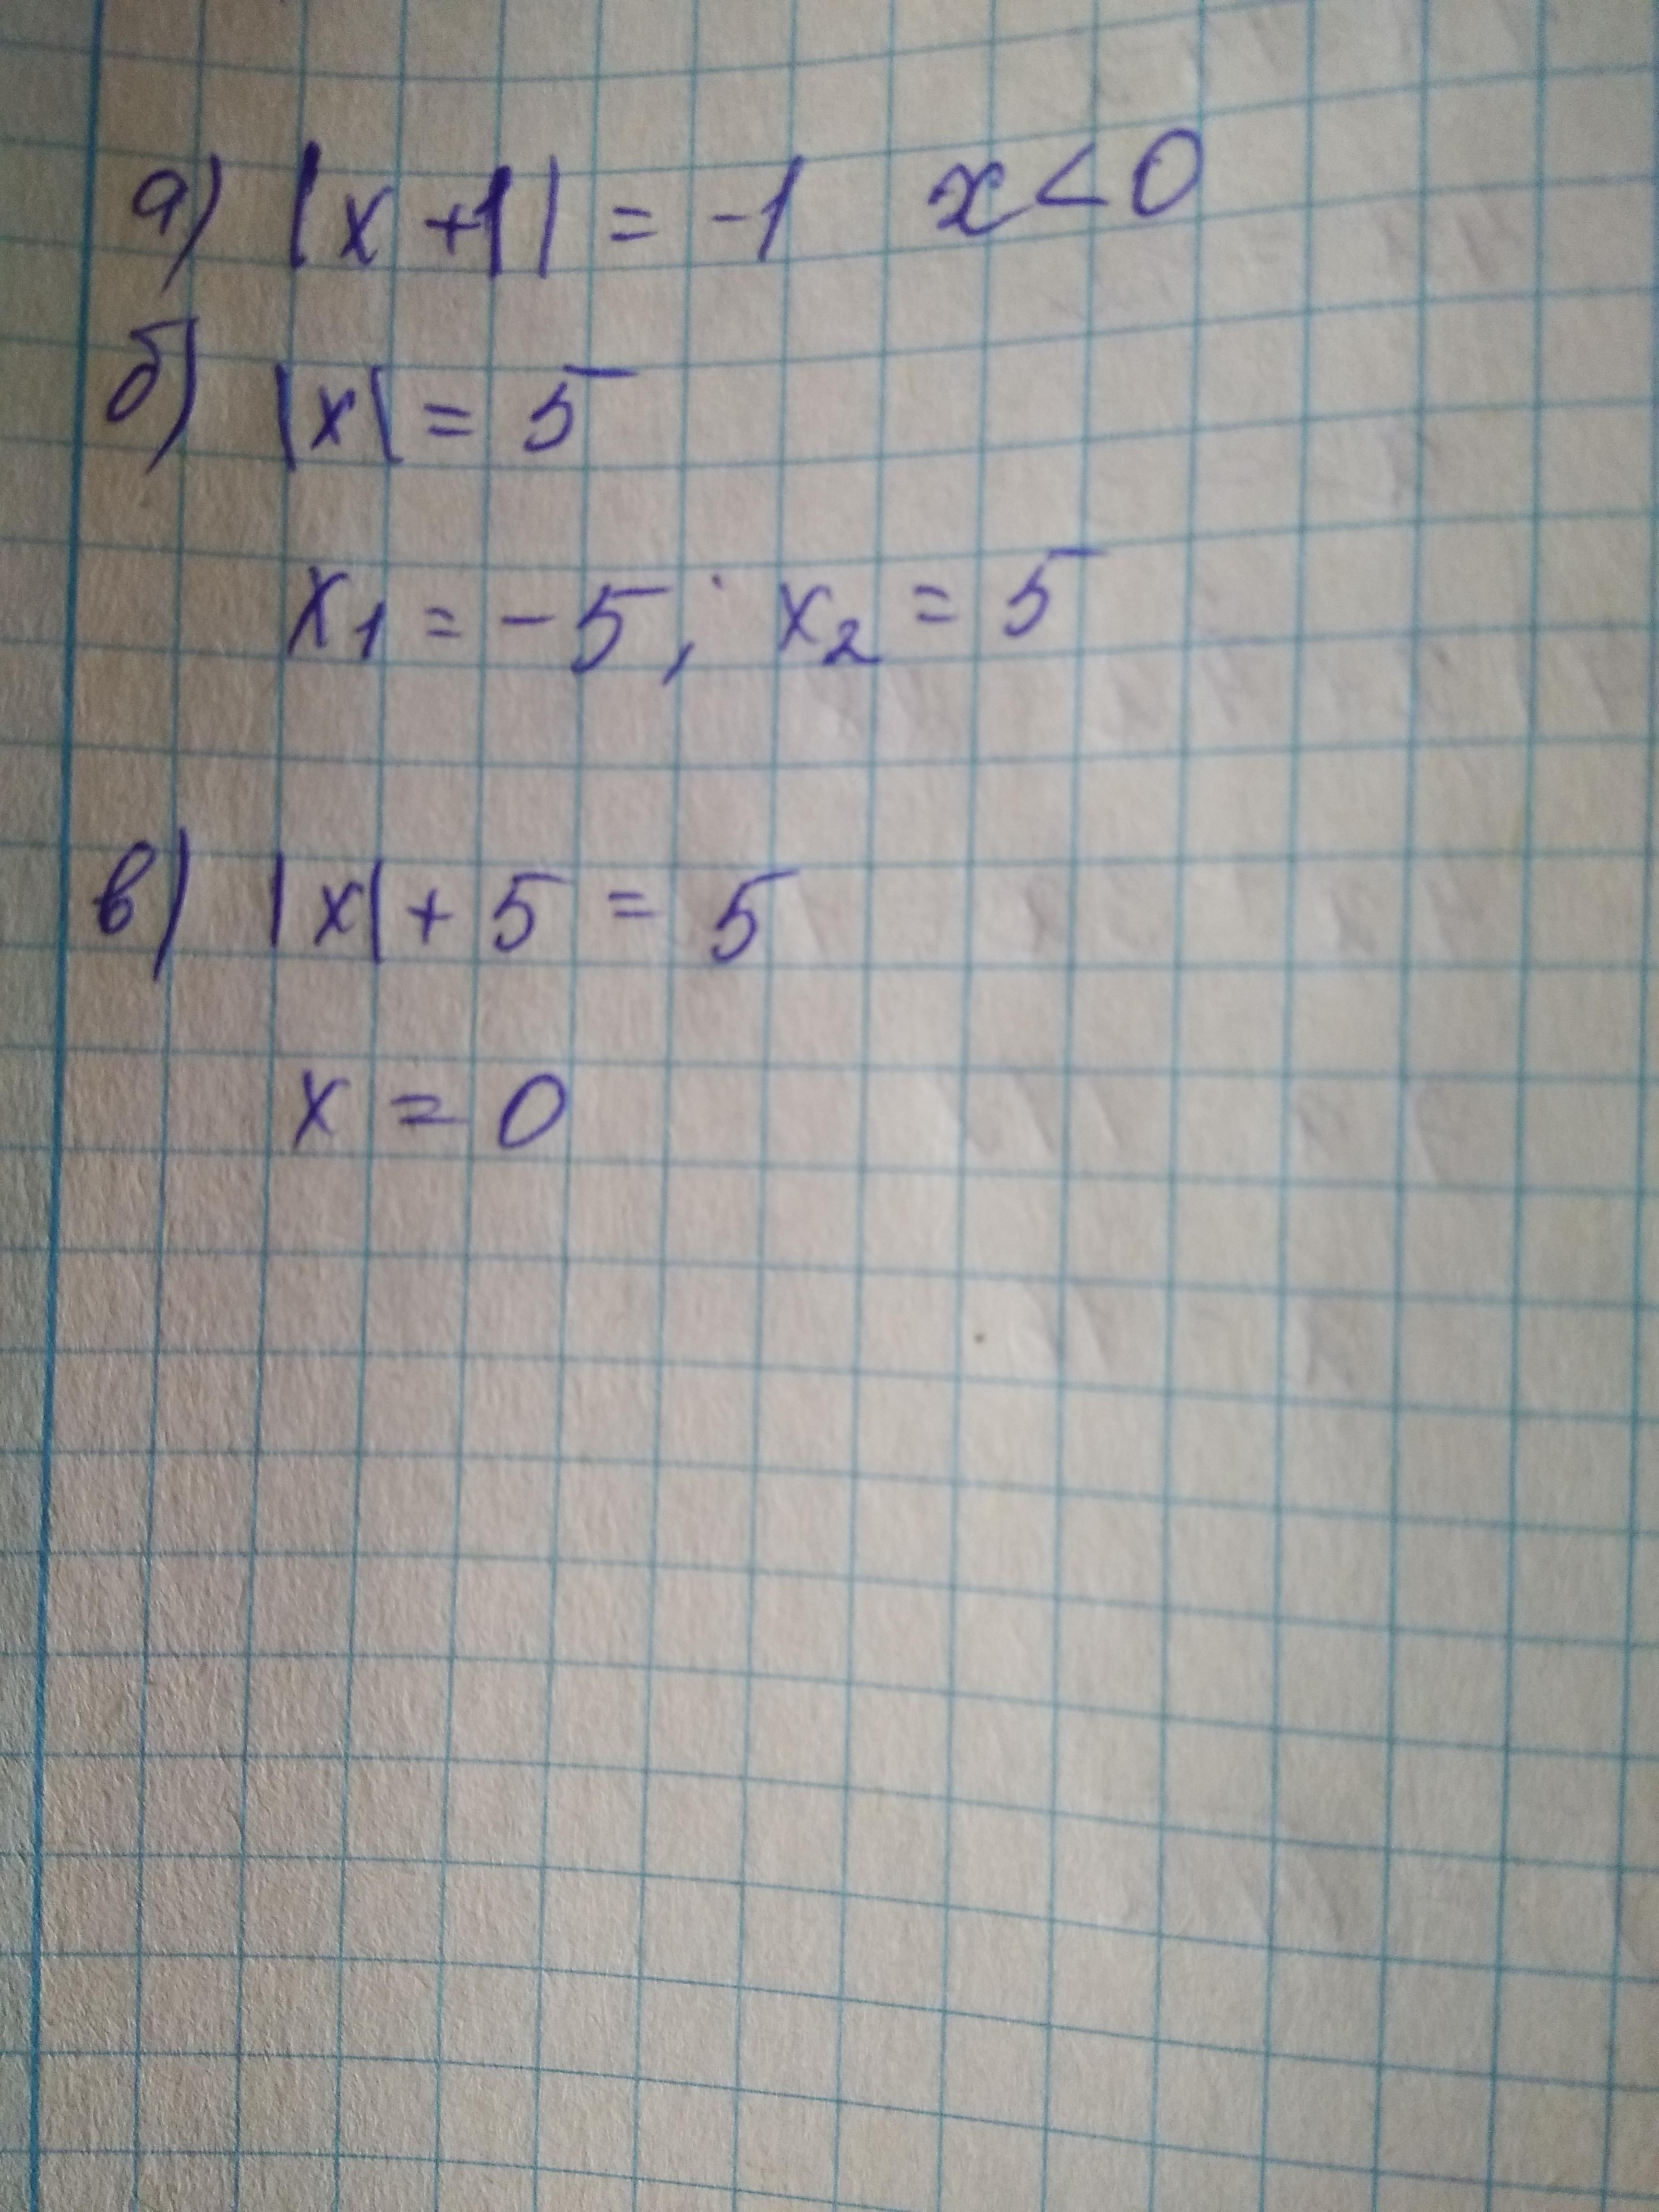 а) |x+1| = -1 x<0
б) |x| = 5
x₁ = -5; x₂ = 5
в) |x| + 5 = 5
x = 0